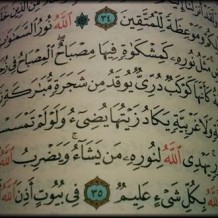 وَمَوْعِظَةً لِّلْمُتَّقِينَ ٣٤ ۞ ٱللَّهُ نُورُ
مَثَلُ نُورِهِۦ كَمِشْكَوٰةٍ فِيهَا مِصْبَاحٌ ٱلْمِصْبَاحُ فِى
كَأَنَّهَا كَوْكَبٌ دُرِّىٌّ يُوقَدُ مِن شَجَرَةٍ
وَلَا غَرْبِيَّةٍ يَكَادُ زَيْتُهَا يُضِىٓءُ وَلَوْ لَمْ
يَهْدِى ٱللَّهُ لِنُورِهِۦ مَن يَشَآءُ وَيَضْرِبُ ٱللَّهُ
بِكُلِّ شَىْءٍ عَلِيمٌ ٣٥ فِى بُيُوتٍ أَذِنَ ٱللَّهُ